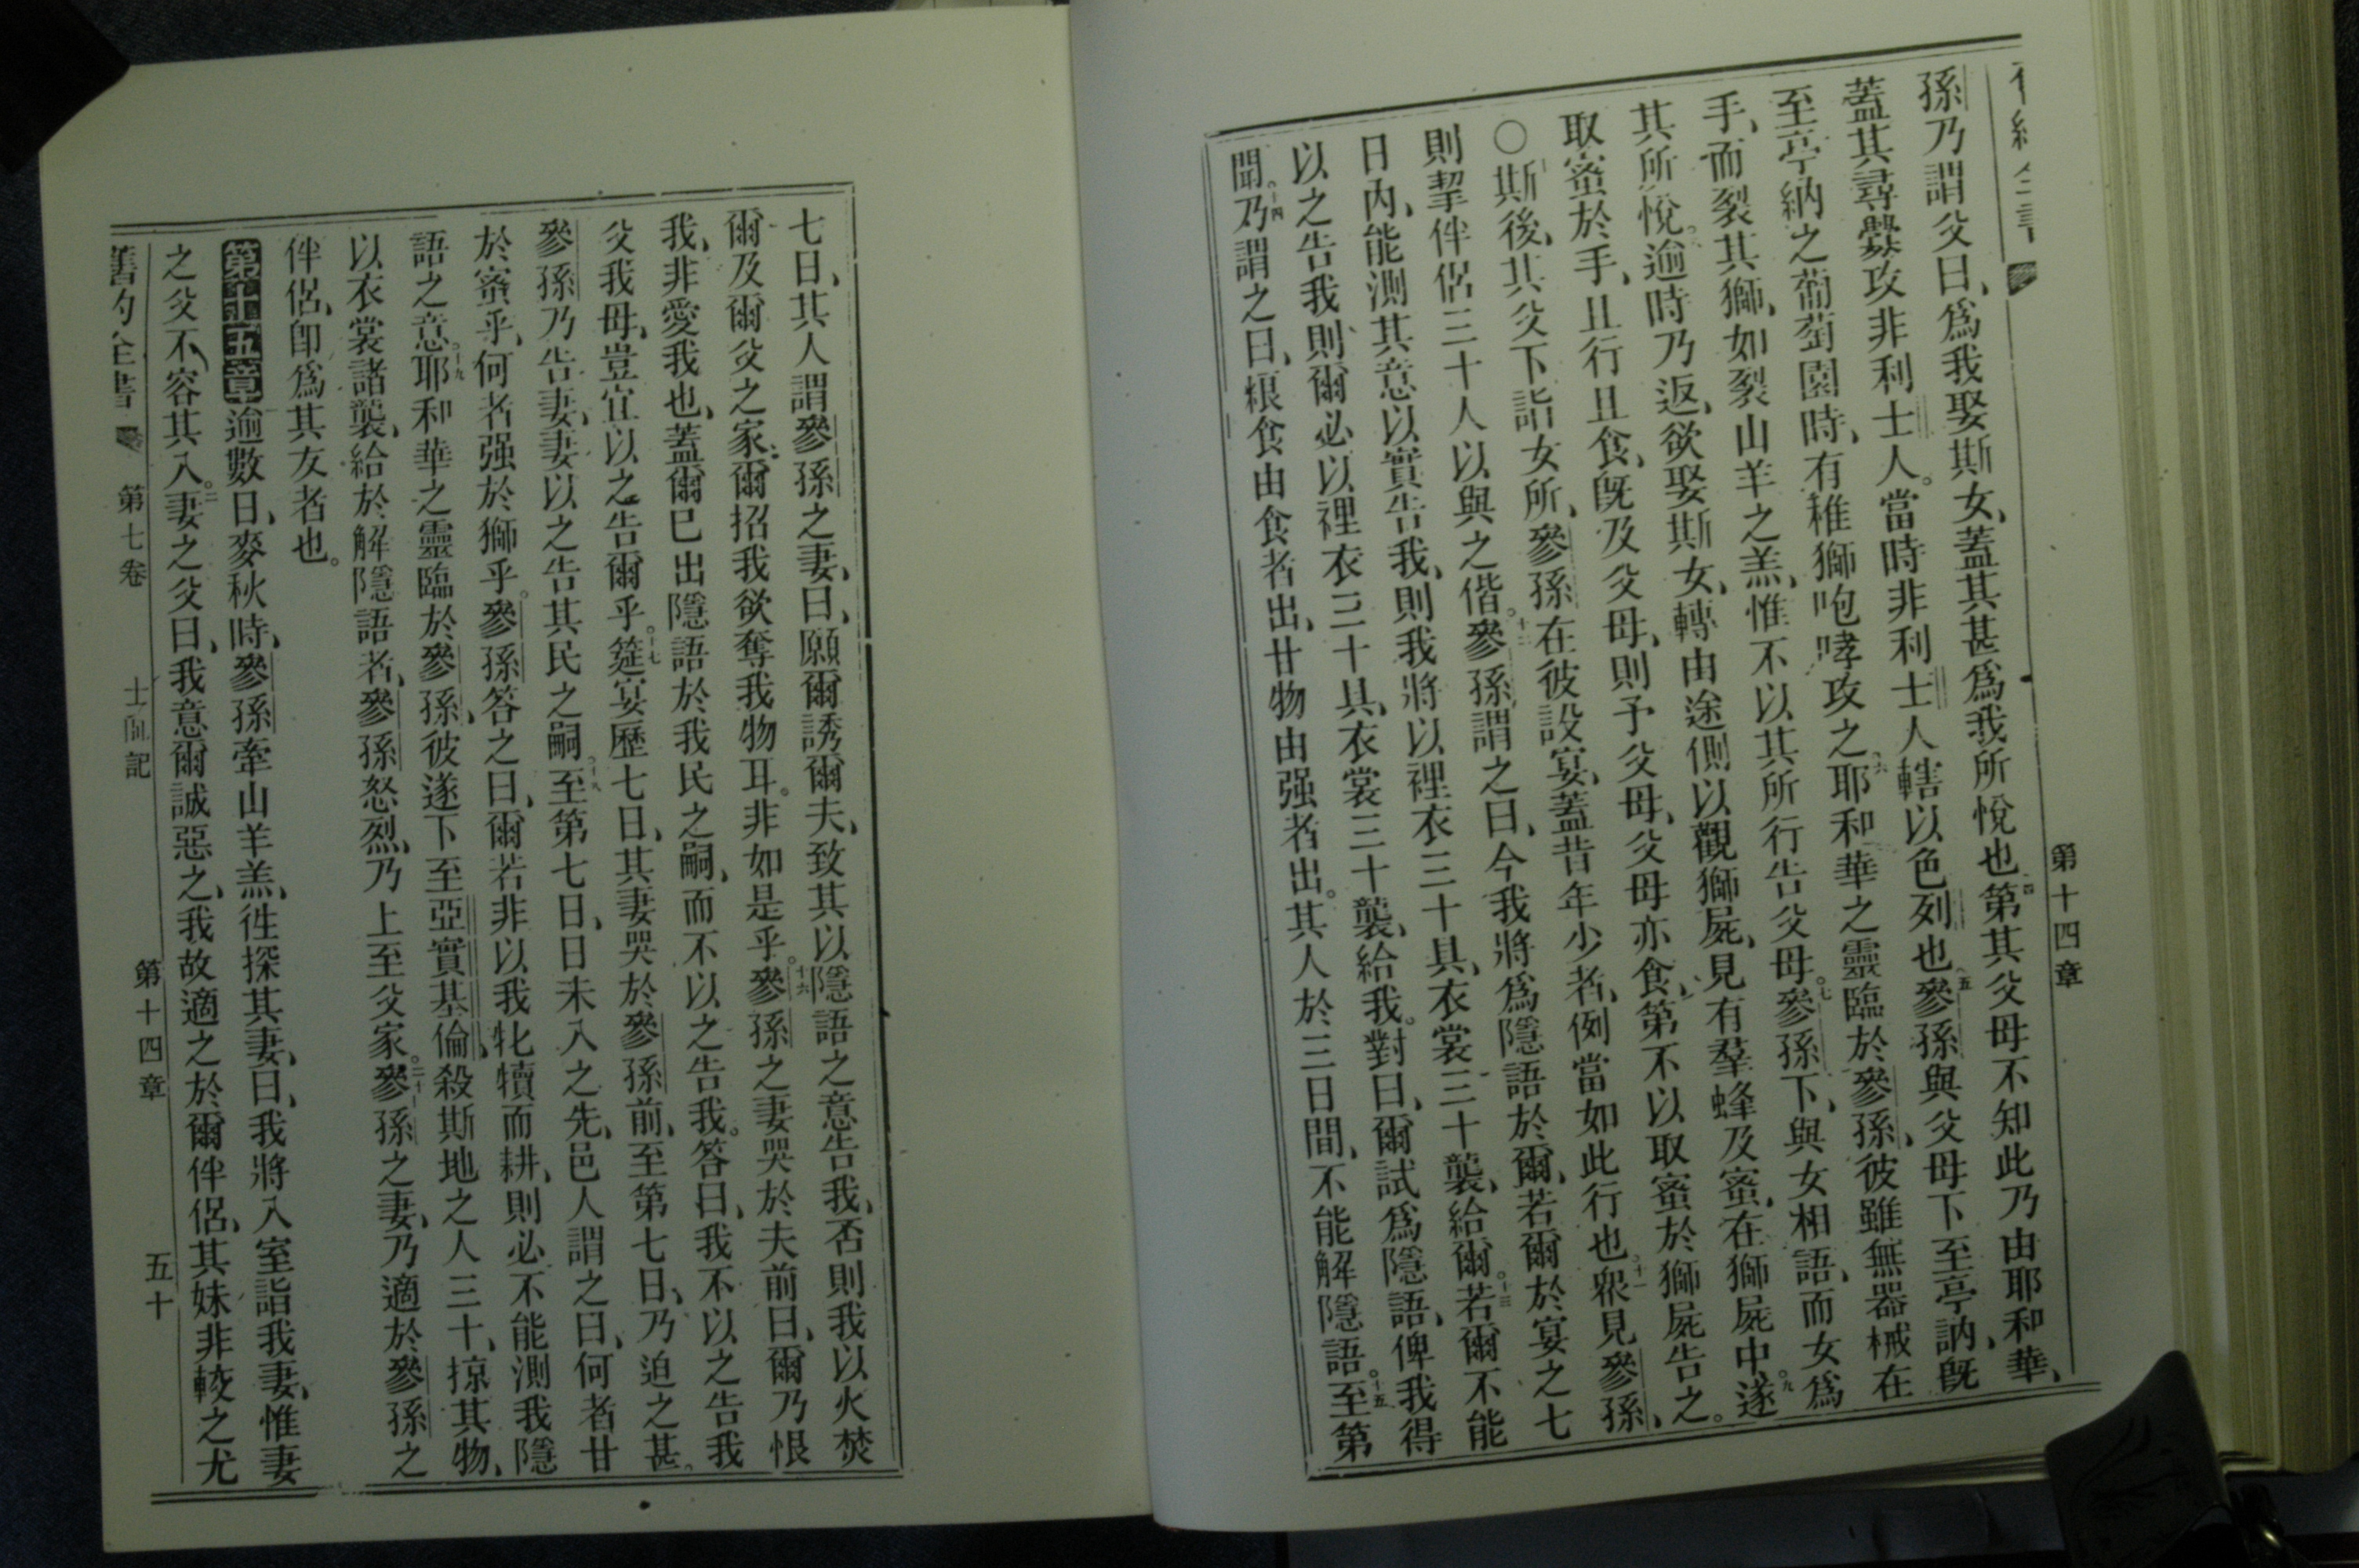 第十四章
孫乃謂父曰、爲我娶斯女、蓋其甚爲我所悅也。四第其父母不知此乃由耶和華、
蓋其尋釁攻非利士人。當時非利士人轄以色列也。五參孫與父母下至亭訥、既
至亭納之葡萄園時、有稚獅咆哮攻之。六耶和華之靈臨於參孫、彼雖無器械在
手、而裂其獅、如裂山羊之羔、惟不以其所行告父母。七參孫下、與女相語、而女爲
其所悅。八逾時乃返、欲娶斯女、轉由途側以觀獅屍、見有羣蜂及蜜、在獅屍中。九遂
取蜜於手、且行且食、既及父母、則予父母、父母亦食、第不以取蜜於獅屍告之。
〇斯後、其父下詣女所、參孫在彼設宴、蓋昔年少者、例當如此行也。十一衆見參孫、
則挈伴侶三十人以與之偕。十二參孫謂之曰、今我將爲隱語於爾、若爾於宴之七
日內、能測其意以實告我、則我將以裡衣三十具、衣裳三十襲、給爾。十三若爾不能
以之告我、則爾必以裡衣三十具、衣裳三十襲、給我。對曰、爾試爲隱語、俾我得
聞。十四乃謂之曰、糧食由食者出、甘物由强者出。其人於三日間、不能解隱語。十五至第
七日、其人謂參孫之妻、曰、願爾誘爾夫、致其以隱語之意告我、否則我以火焚
爾及爾父之家、爾招我欲奪我物耳。非如是乎。十六參孫之妻哭於夫前曰、爾乃恨
我、非愛我也、蓋爾已出隱語於我民之嗣、而不以之告我。答曰、我不以之告我
父我母、豈宜以之告爾乎。十七筵宴歷七日、其妻哭於參孫前、至第七日、乃迫之甚。
參孫乃告妻、妻以之告其民之嗣。十八至第七日、日未入之先、邑人謂之曰、何者甘
於蜜乎、何者强於獅乎。參孫答之曰、爾若非以我牝犢而耕、則必不能測我隱
語之意。十九耶和華之靈臨於參孫、彼遂下至亞實基倫、殺斯地之人三十、掠其物、
以衣裳諸襲、給於解隱語者、參孫怒烈、乃上至父家。二十參孫之妻、乃適於參孫之
伴侶、卽爲其友者也。
第十五章逾數日、麥秋時、參孫牽山羊羔、徃探其妻、曰、我將入室詣我妻、惟妻
之父不容其入。二妻之父曰、我意爾誠惡之、我故適之於爾伴侶、其妹非較之尤
舊約全書 第七卷 士師記 第十四章 五十